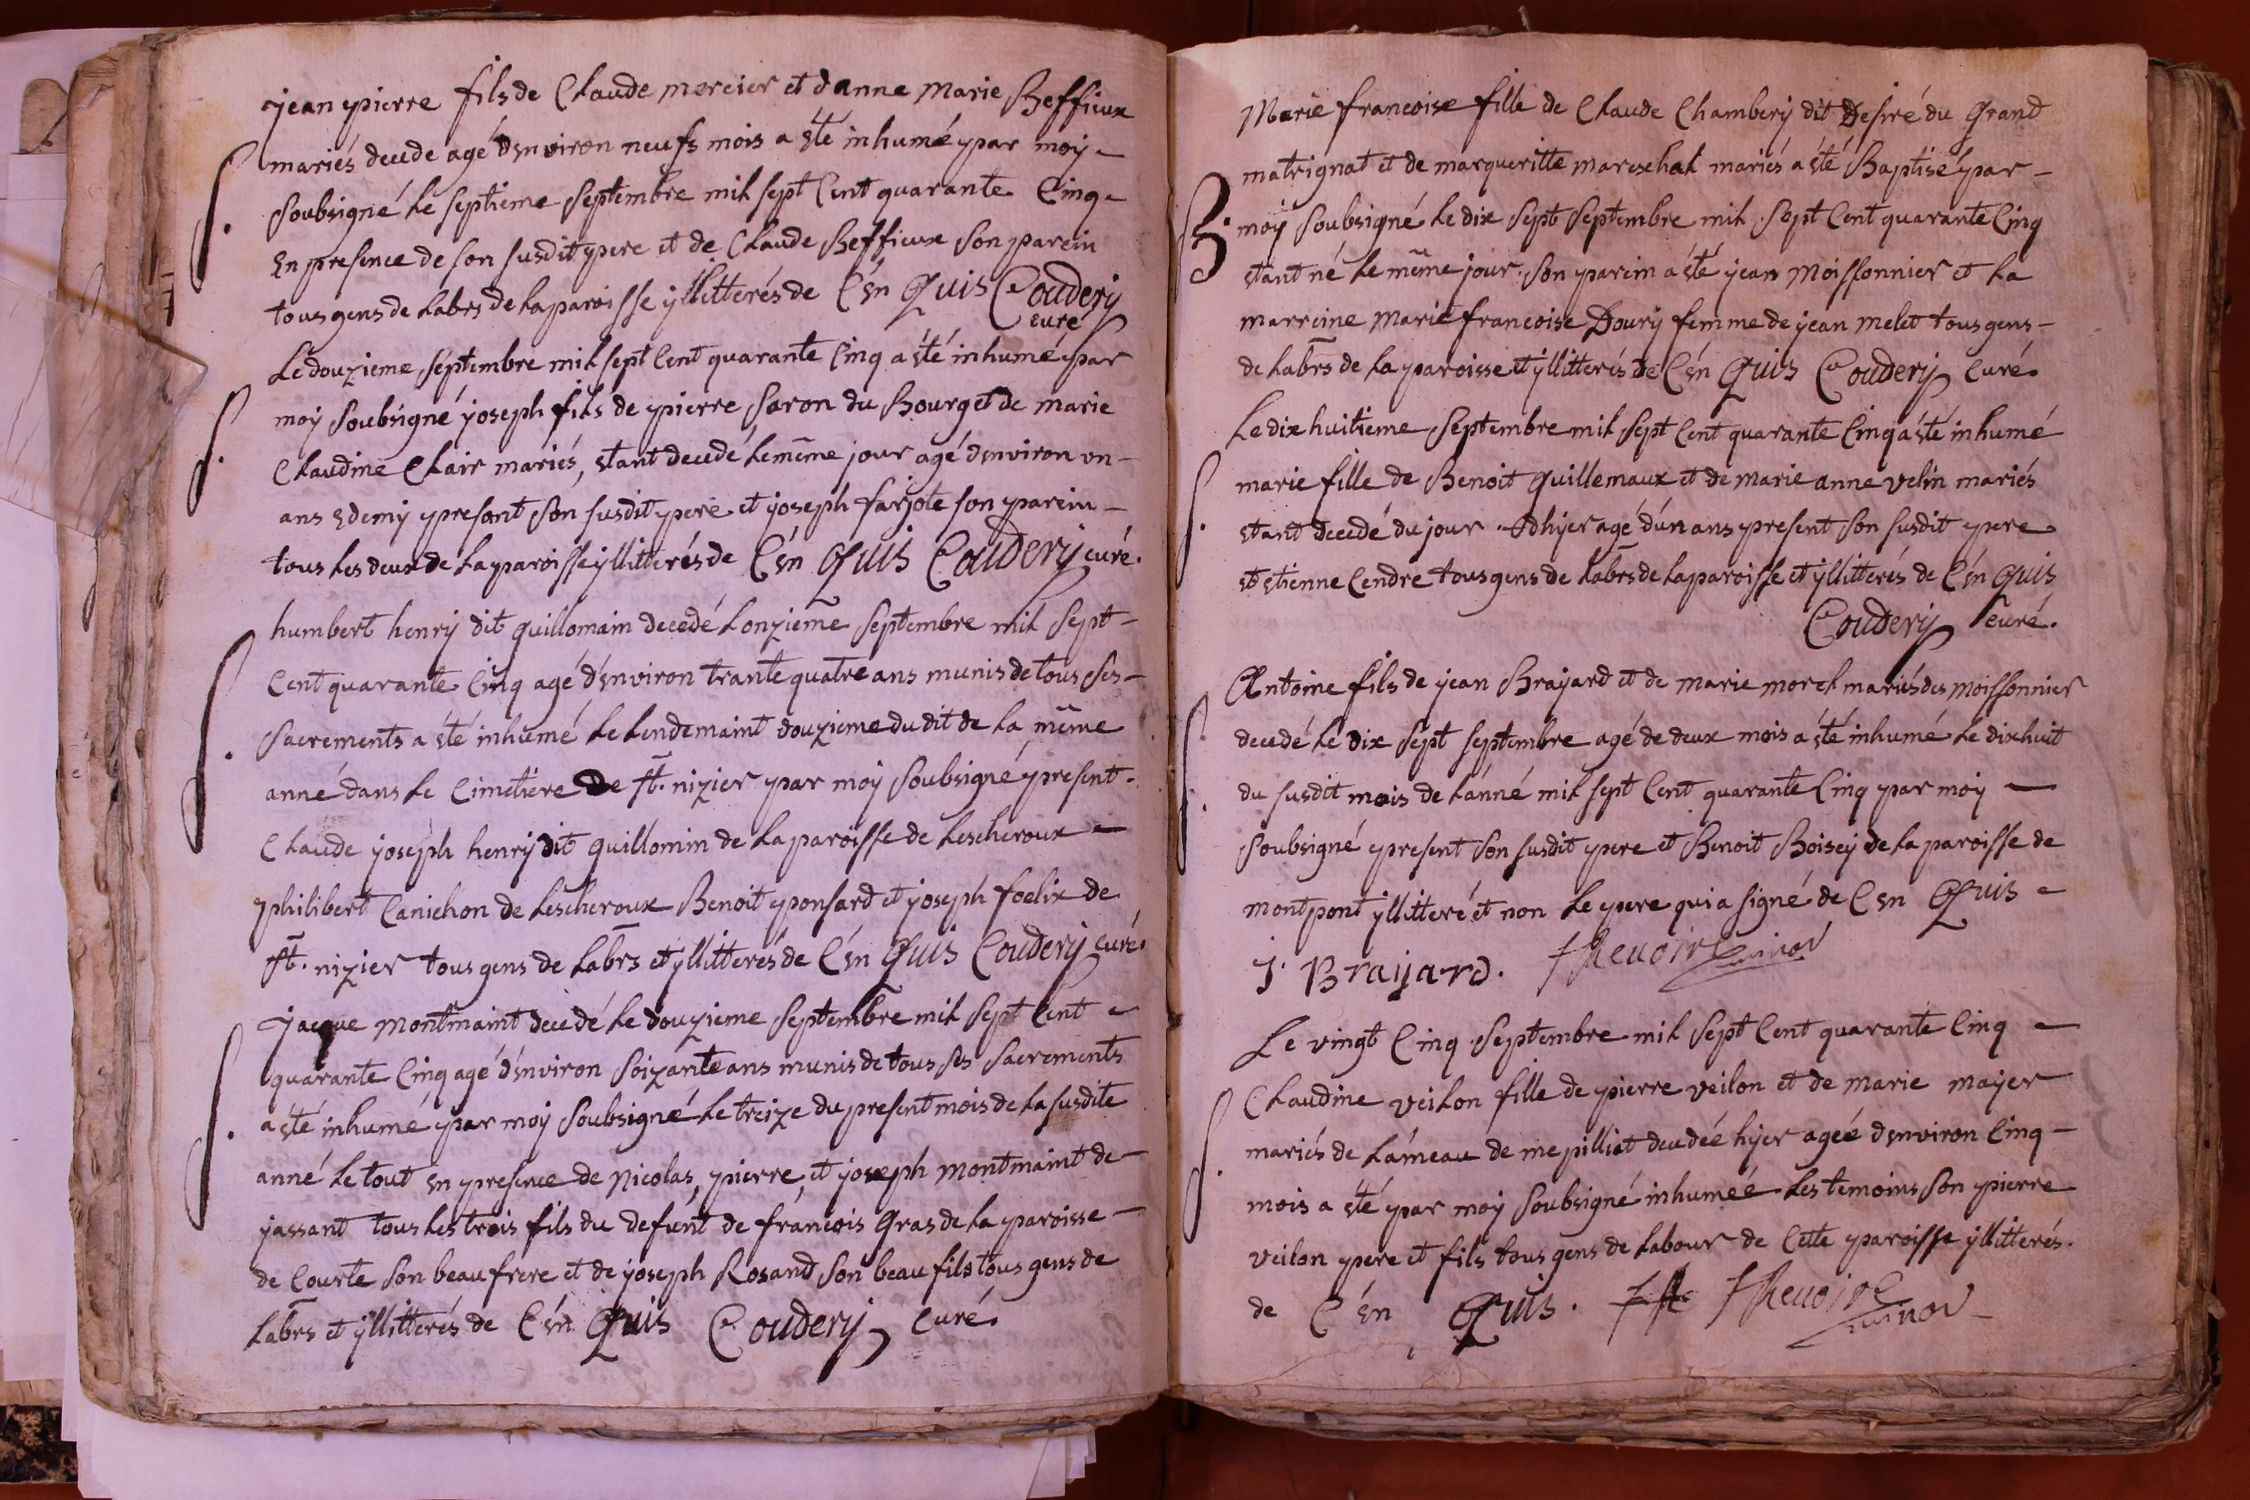 jean pierre fils de Claude mercier et danne Marie Beffieux
mariés decede agé d'environ neufs mois a été inhumé par moy
S.
soubsigné le septieme septembre mil sept cent quarante cinq
En presence de son susdit pere et de Claude Beffieux son parein
tous gens de labrs de la paroisse yllitterés de C'én Quis Coudery
curé
Le douzieme septembre mil sept cent quarante cinq a été inhumé par
moy soubsigné joseph fils de pierre Saron du Bourg et de marie
S.
Claudine Clair mariés, étant decedé le même jour agé d'environ un
ans edemy present son susdit pere et joseph farjote son parein
tous les deux de la paroisse yllitterés de C'én Quis Coudery curé.
humbert henry dit guillomain decedé lonzieme septembre mil sept
cent quarante cinq agé d'environ trante quatre ans munis de tous ses
S.
sacrements a été inhumé le lendemaint douzieme du dit de la même
anné dans le cimetiere de st. nizier par moy soubsigné present
Claude joseph henry dit guillomin de la paroisse de Lescheroux
philibert Canichon de Lescheroux Benoit ponsard et joseph foelix de
st. nizier tous gens de labrs et yllitterés de C'én Quis Coudery curé.
jacque montmaint decedé le douzieme septembre mil sept cent
quarante cinq agé d'environ soizante ans munis de tous ses sacrements
S.
a été inhumé par moy soubsigné le treize du present mois de la susdite
anné le tout en presence de nicolas, pierre, et joseph montmaint de
jassant tous les trois fils du defunt de francois Gras de la paroisse
de Courte son beau frere et de joseph Rosand son beau fils tous gens de
labrs et yllitterés de C'én Quis Coudery curé.
Marie francoise fille de Claude Chambery dit Desiré du Grand
matrignat et de margueritte mareschal mariés a été Baptisé par
B.
moy soubsigné le dix sept septembre mil sept cent quarante cinq
étant né le même jour. son parein a été jean Moissonnier et la
marreine marie francoise Doury femme de jean melet tous gens
de labrs de la paroisse et yllitterés de C'én Quis Coudery curé.
Le dix huitieme septembre mil sept cent quarante cinq a été inhumé
marie fille de Benoit guillemaux et de marie anne velin mariés
S.
étant decedé du jour d'hyer agé d'un ans present son susdit pere
et etienne Cendre tous gens de labrs de la paroisse et yllitterés de C'én Quis
Coudery curé.
Antoine fils de jean Brayard et de marie morel mariés des moissonnier
S.
decedé le dix sept septembre agé de deux mois a été inhumé le dix huit
du susdit mois de l'anné mil sept cent quarante cinq par moy
soubsigné present son susdit pere et Benoit Boisey de la paroisse de
montpont yllitteré et non le pere qui a signé de C'én Quis
J. Brayard. Thevoire
Le vingt cinq septembre mil sept cent quarante cinq
Claudine veilon fille de pierre veilon et de marie mayer
S.
mariés de lámeau de mepilliat decedéé hyer agéé d'environ cinq
mois a été par moy soubsigné inhuméé les temoins son pierre
veilon pere et fils tous gens de labour de cette paroisse yllitterés.
de C'én Quis. Thevoire